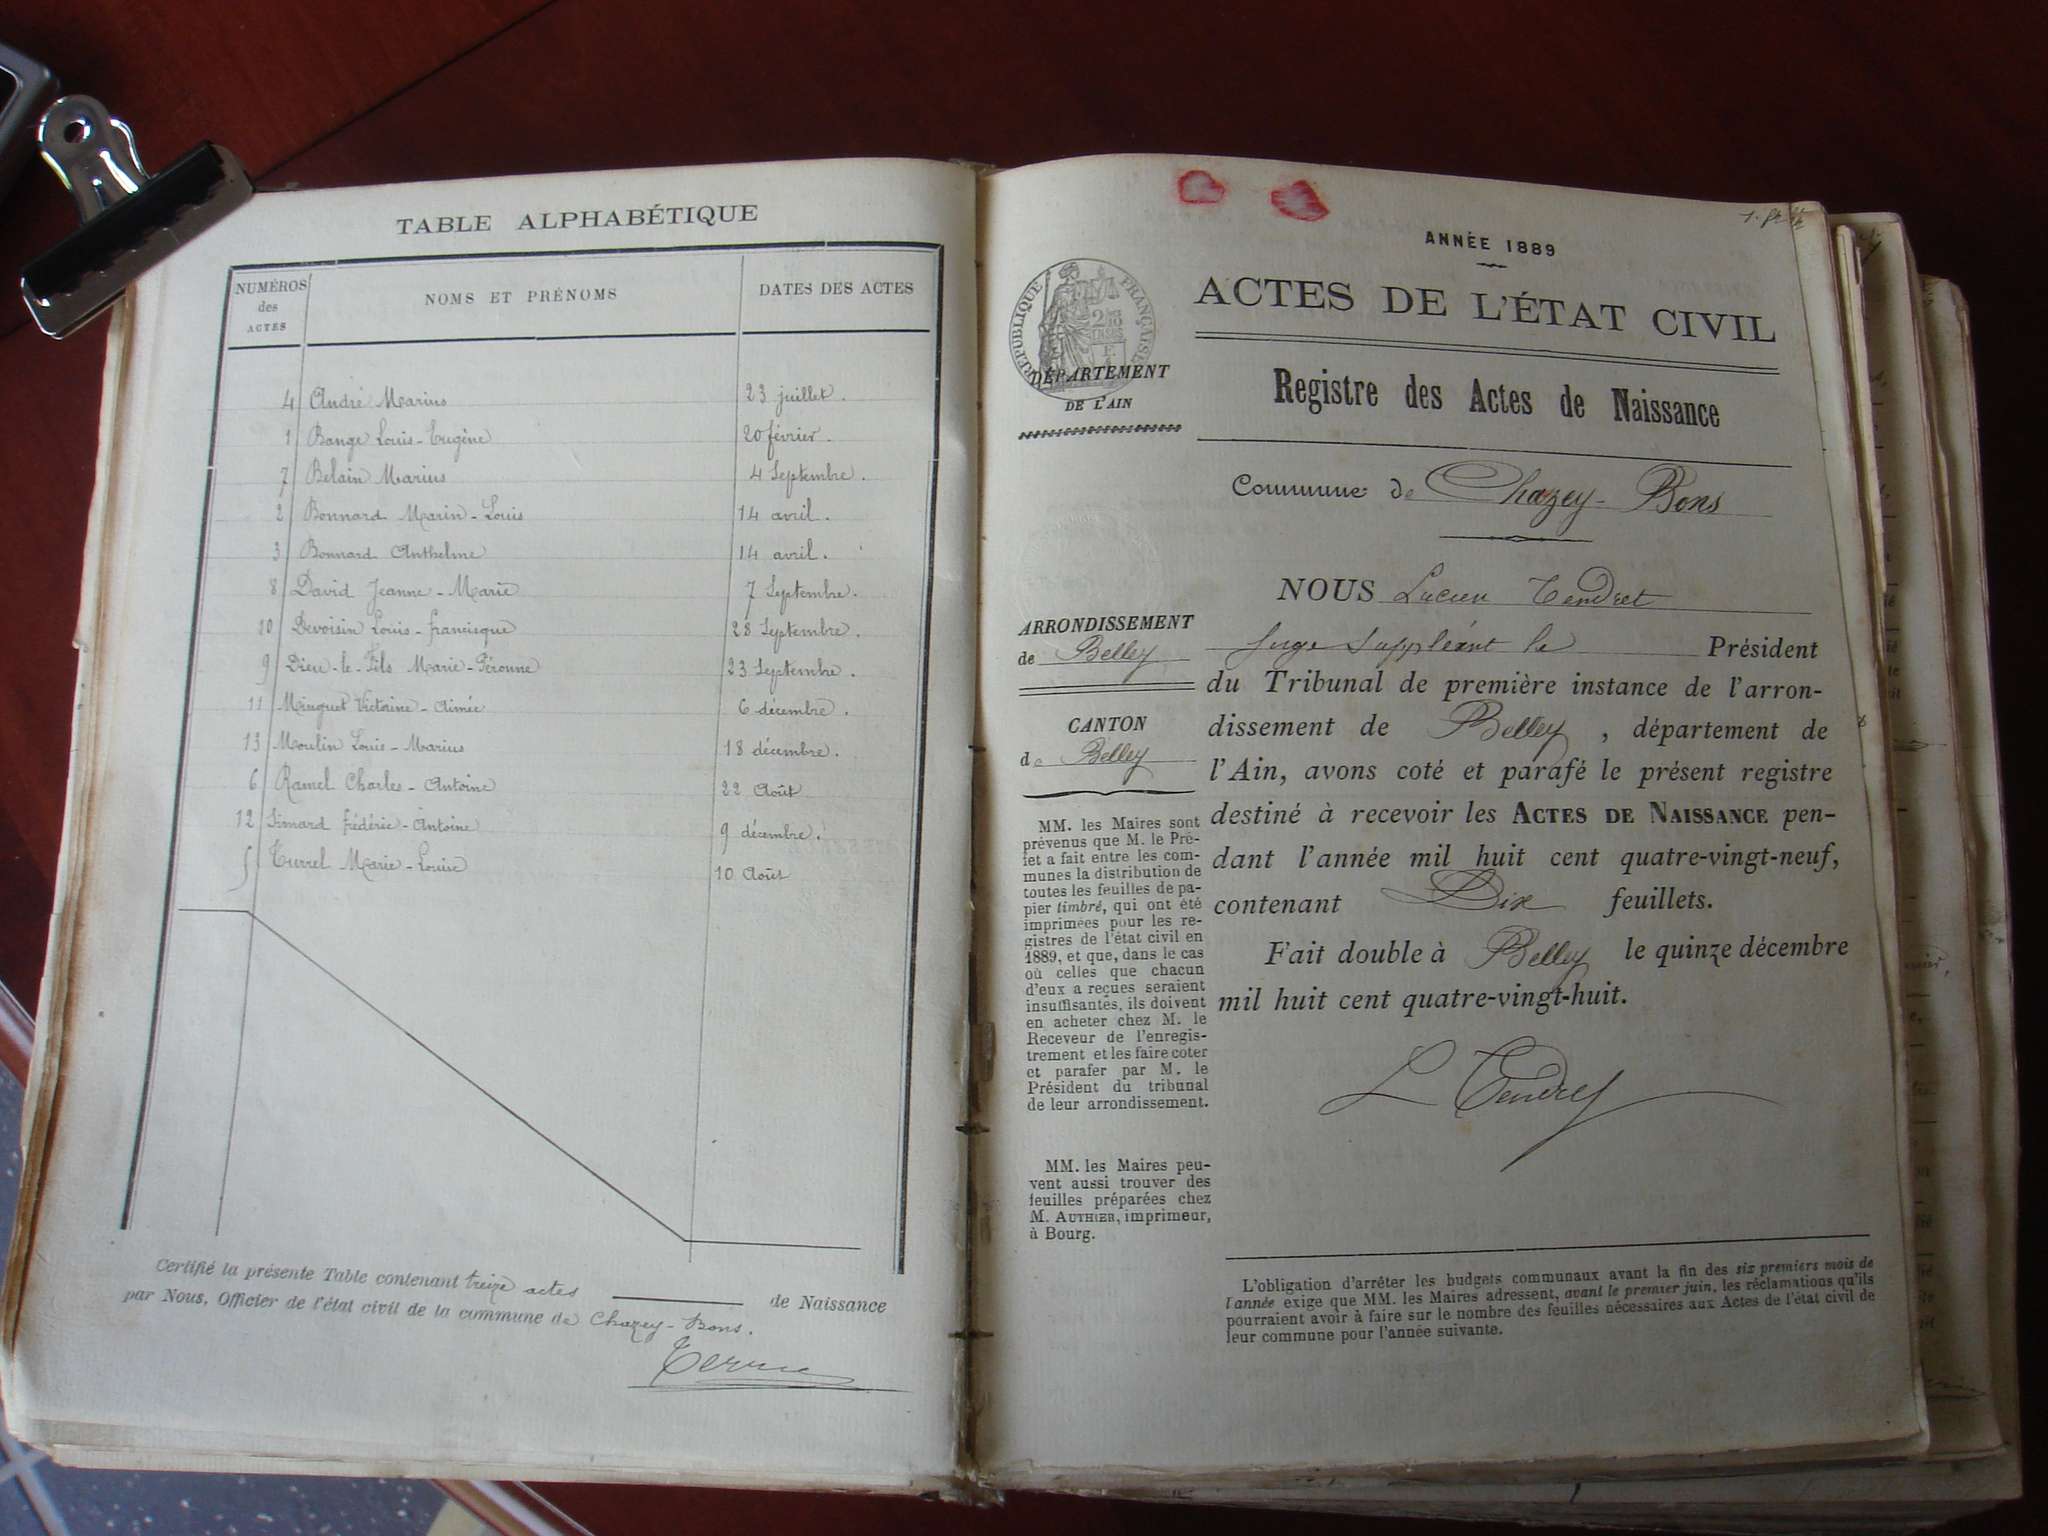 TABLE ALPHABÉTIQUE
NUMÉROS des ACTES
NOMS ET PRÉNOMS
DATES DES ACTES
4 André Marius 23 juillet.
1 Bange Louis-Eugène 20 février.
7 Belain Marius 4 Septembre.
2 Bonnard Marin-Louis 14 avril.
3 Bonnard Anthelme 14 avril.
8 David Jeanne-Marie 7 Septembre.
10 Devoisin Louis-francisque 28 Septembre.
9 Dieu-le-Fils Marie-Péronne 23 Septembre.
11 Minguet Victorine-Aimée 6 décembre.
13 Moulin Louis-Marius 18 décembre.
6 Ramel Charles-Antoine 22 Août
12 Simard frédéric-Antoine 9 décembre.
5 Turrel Marie-Louise 10 Août
Certifié la présente Table contenant treize actes de Naissance
par Nous, Officier de l'état civil de la commune de Chazey-Bons.
ANNÉE 1889
RÉPUBLIQUE FRANÇAISE
ACTES DE L'ÉTAT CIVIL
DÉPARTEMENT
DE L'AIN
Registre des Actes de Naissance
Commune de Chazey-Bons
ARRONDISSEMENT
de Belley
CANTON
de Belley
MM. les Maires sont
prévenus que M. le Pré-
fet a fait entre les com-
munes la distribution de
toutes les feuilles de pa-
pier timbré, qui ont été
imprimées pour les re-
gistres de l'état civil en
1889, et que, dans le cas
où celles que chacun
d'eux a reçues seraient
insuffisantes, ils doivent
en acheter chez M. le
Receveur de l'enregis-
trement et les faire coter
et parafer par M. le
Président du tribunal
de leur arrondissement.
MM. les Maires peu-
vent aussi trouver des
feuilles préparées chez
M. AUTHIER, imprimeur,
à Bourg.
NOUS Lucien Tendret
Juge Suppléant le Président
du Tribunal de première instance de l'arron-
dissement de Belley, département de
l'Ain, avons coté et parafé le présent registre
destiné à recevoir les ACTES DE NAISSANCE pen-
dant l'année mil huit cent quatre-vingt-neuf,
contenant Dix feuillets.
Fait double à Belley le quinze décembre
mil huit cent quatre-vingt-huit.
L Tendret
L'obligation d'arrêter les budgets communaux avant la fin des six premiers mois de
l'année exige que MM. les Maires adressent, avant le premier juin, les réclamations qu'ils
pourraient avoir à faire sur le nombre des feuilles nécessaires aux Actes de l'état civil de
leur commune pour l'année suivante.